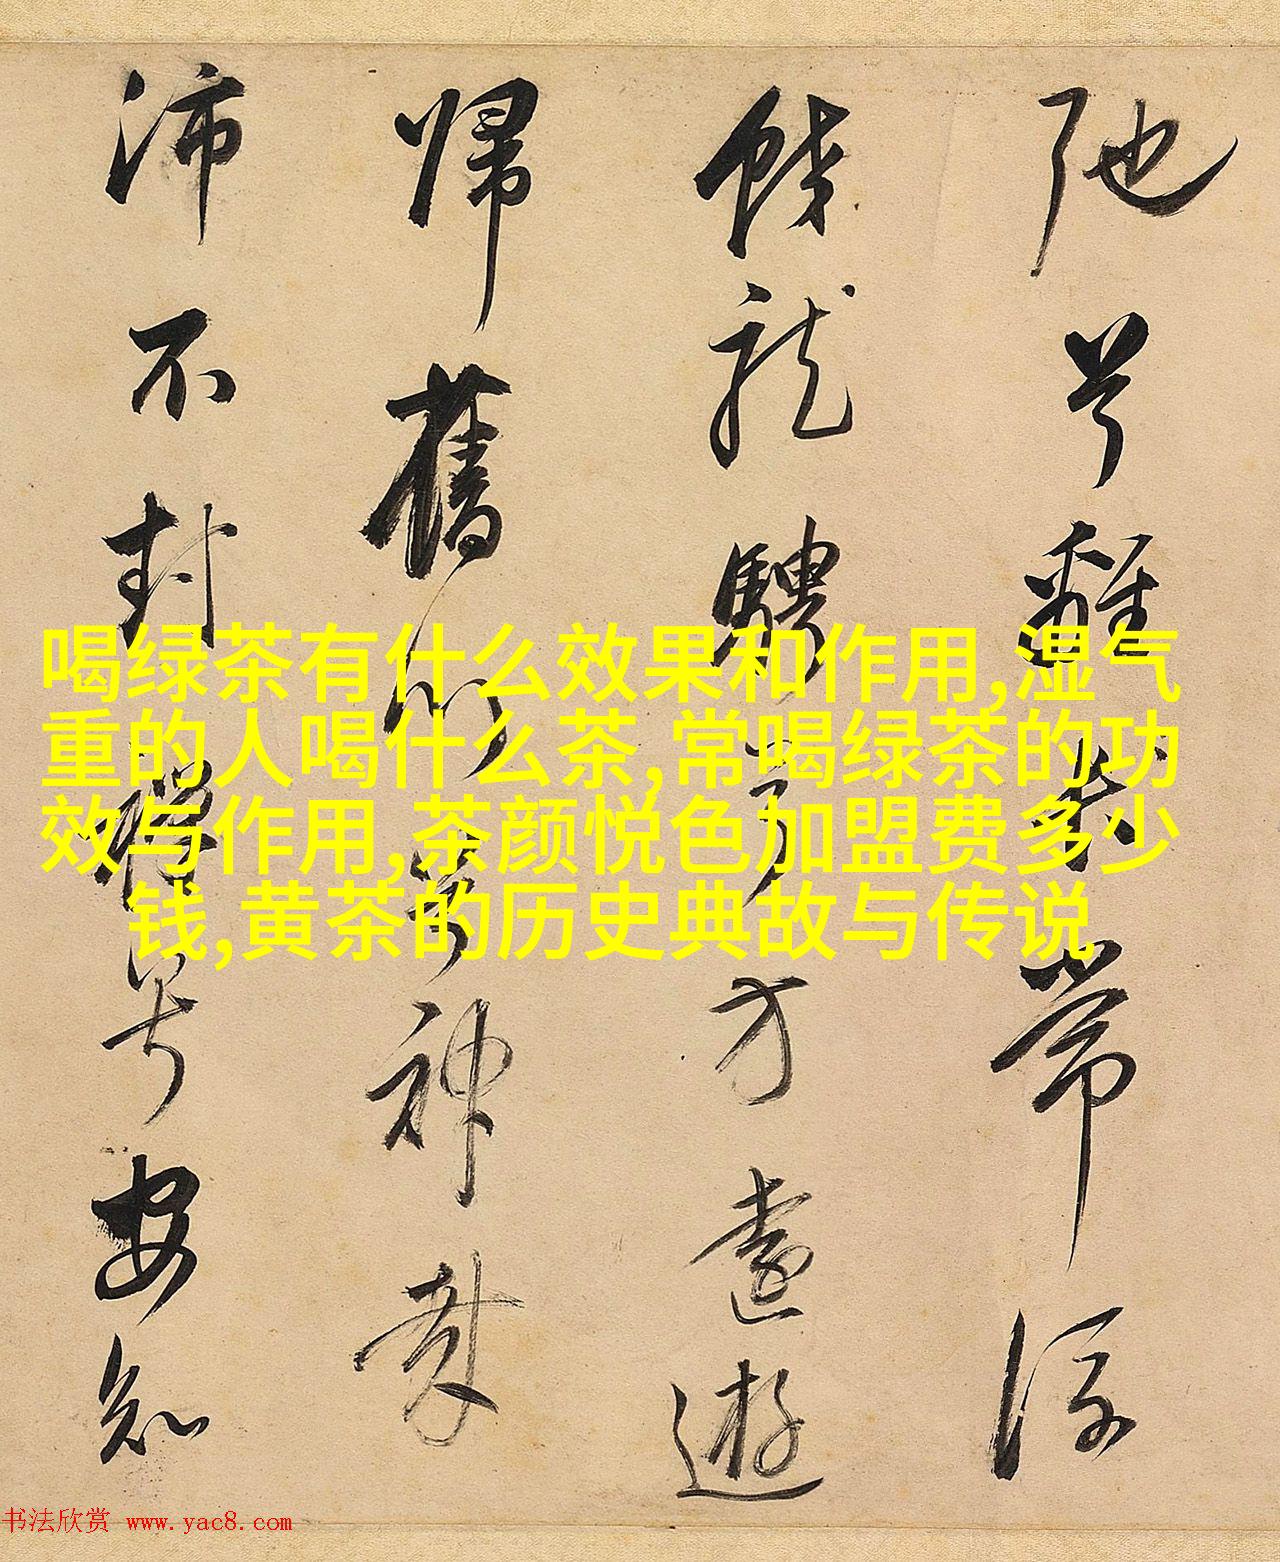 弛兮離
龍方遠遊
歸舊兮神
沛不封兮安知
喝绿茶有什么效果和作用,湿气
重的人喝什么茶,常喝绿茶的功
效与作用,茶颜悦色加盟费多少
钱,黄茶的历史典故与传说
书法欣赏 www.yac8.com